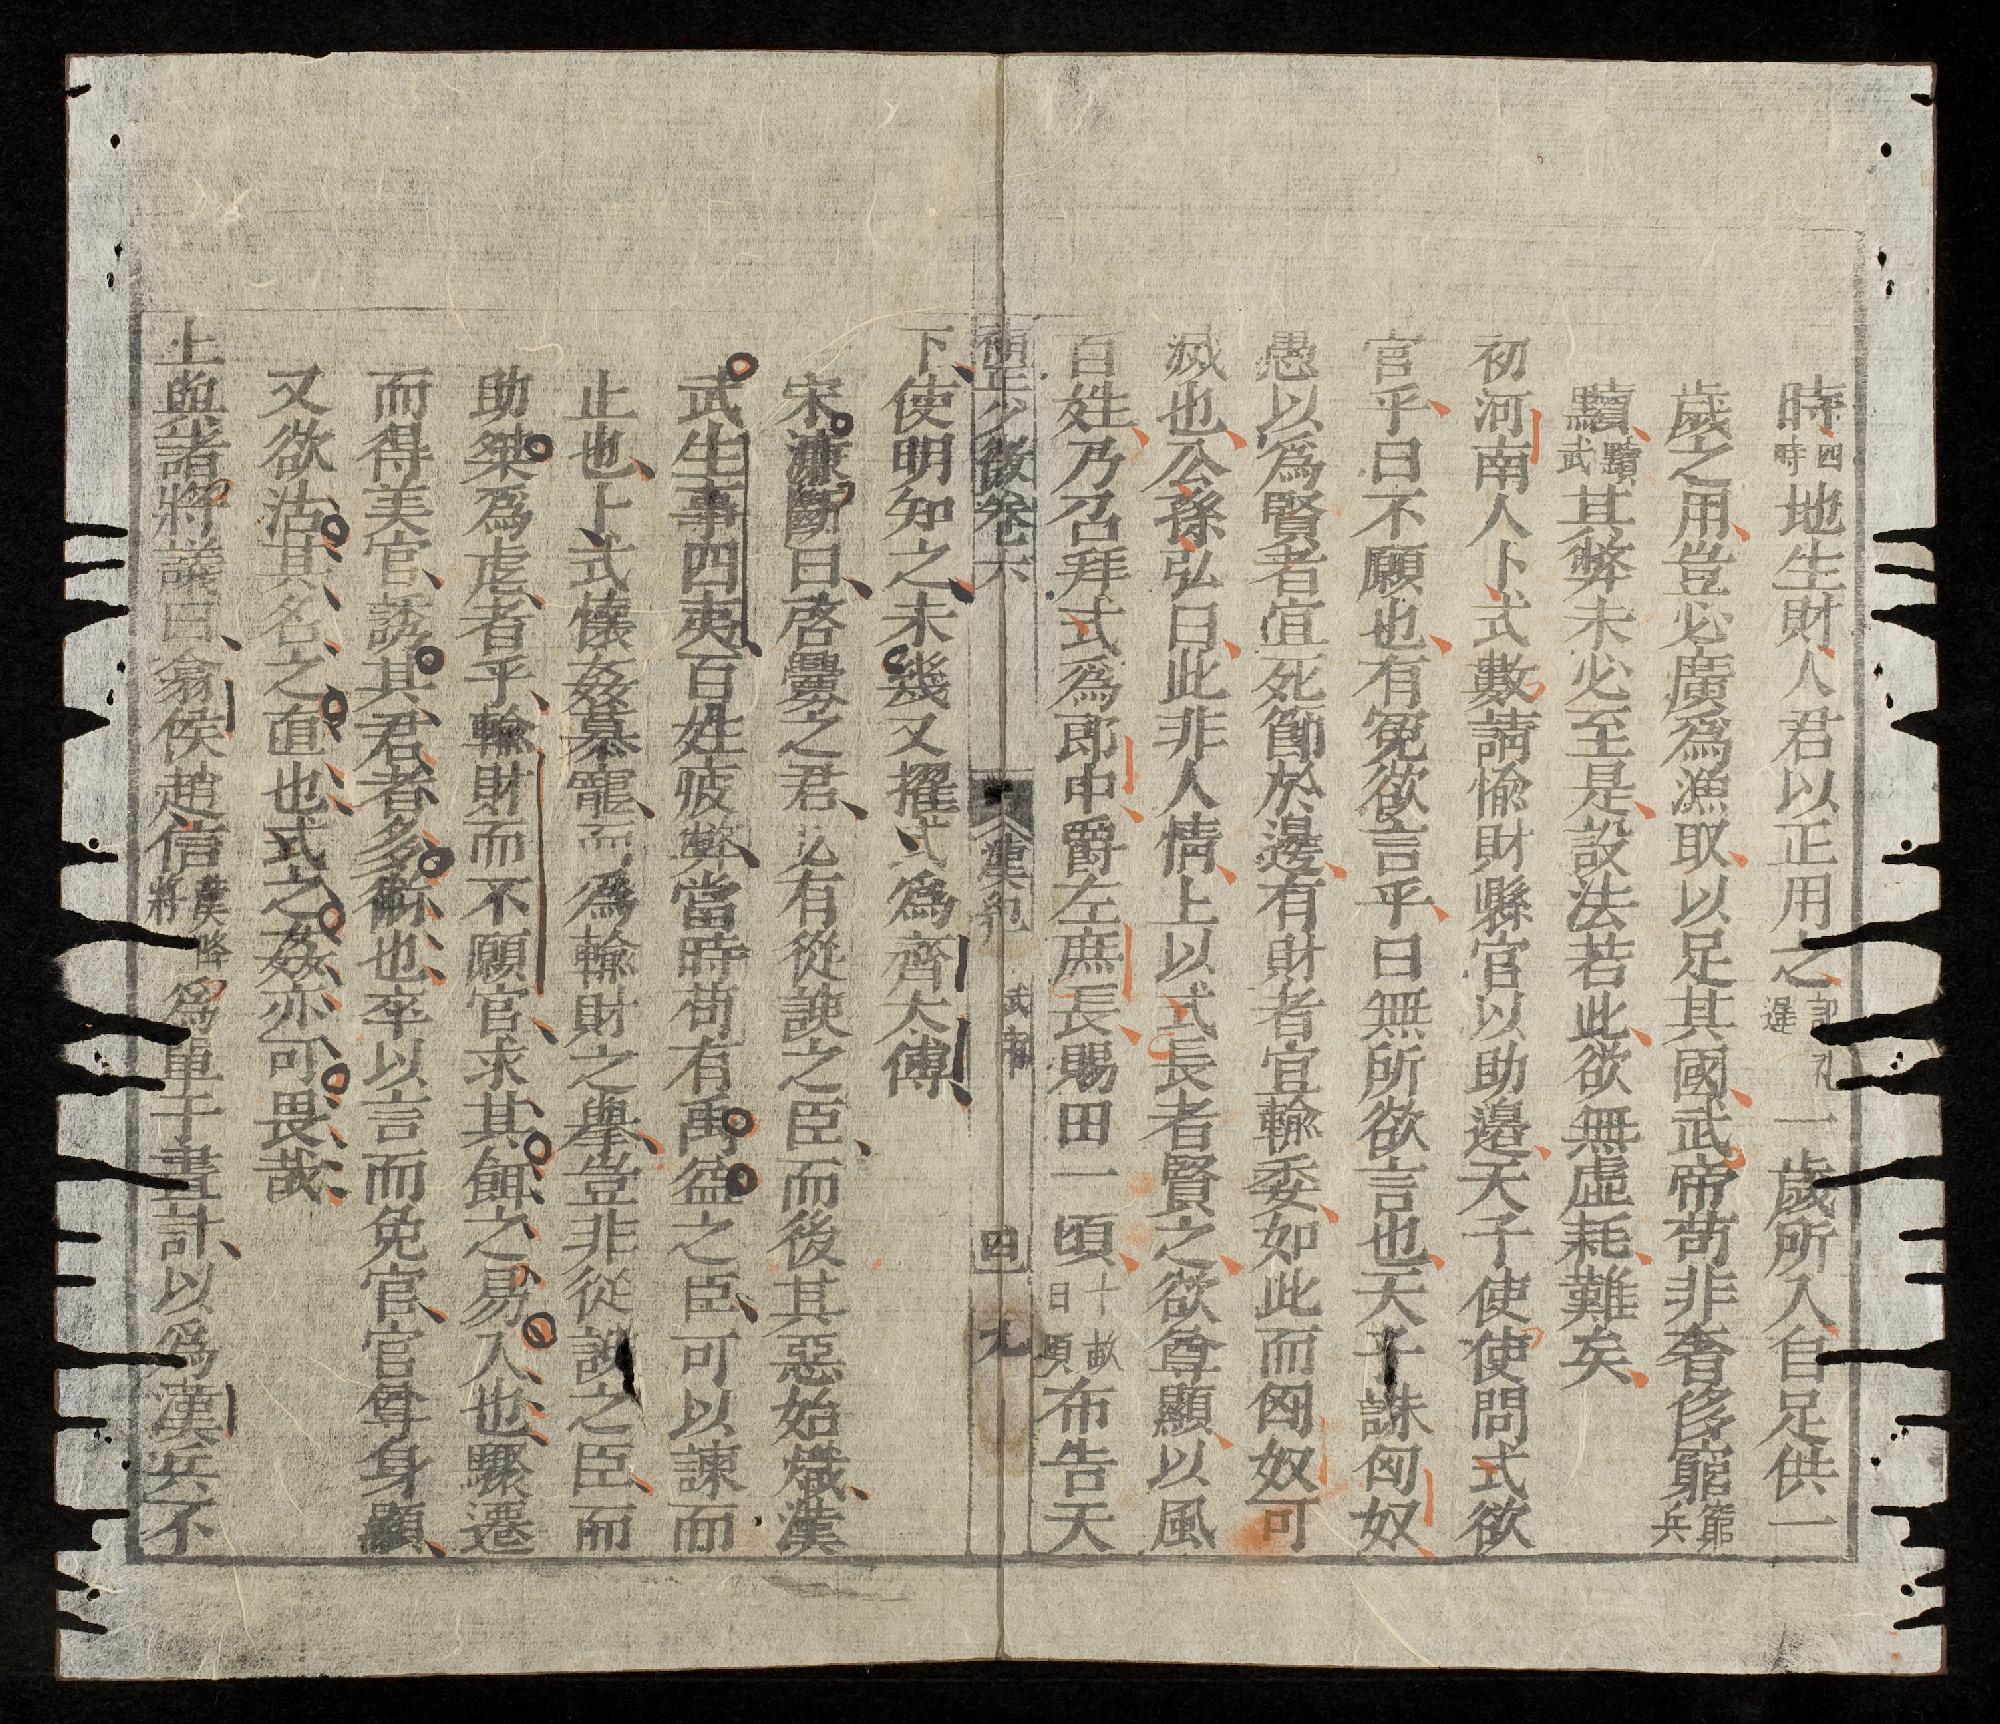 時四時地生財人君以正用之記礼一歲所入自足供一
歲之用豈必廣爲漁取以足其國武帝苟非奢侈窮窮兵
黷黷武其弊未必至是設法若此欲無虛耗難矣
初河南人卜式數請輸財縣官以助邉天子使使問式欲
官乎曰不願也有冤欲言乎曰無所欲言也天子誅匈奴
愚以爲賢者宜死節於邊有財者宜輸委如此而匈奴可
滅也公孫弘曰此非人情上以式長者賢之欲尊顯以風
百姓乃召拜式爲郎中爵左庶長賜田一頃十畝曰頃布告天
少微卷六 漢紀 武帝 四九
下使明知之未幾又擢式爲齊太傅
宋濂斷曰啓釁之君必有從諛之臣而後其惡始熾漢
武生事四夷百姓疲弊當時苟有禹益之臣可以諫而
止也卜式懷姦慕寵而爲輸財之擧豈非從諛之臣而
助桀爲虐者乎輸財而不願官求其餌之易入也驟遷
而得美官誘其君者多術也卒以言而免官官尊身顯
又欲沽其名之直也式之姦亦可畏哉
上與諸將議曰翕侯趙信降將爲單于畫計以爲漢兵不